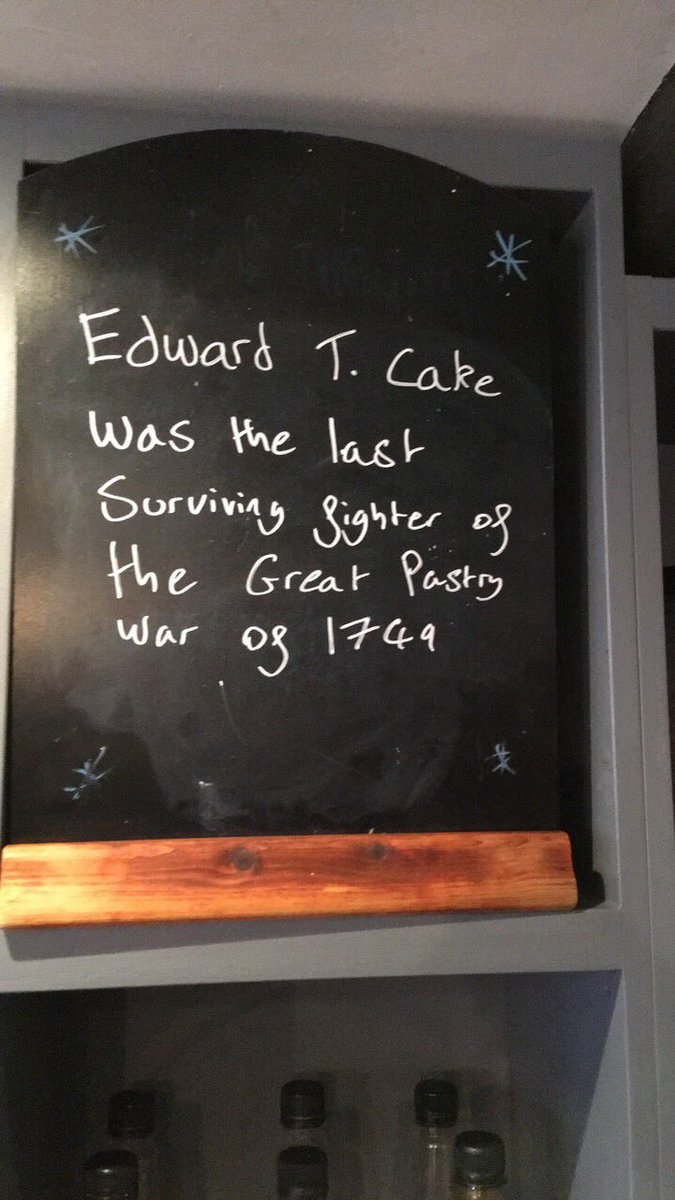 Edward T. Cake
was the last
Surviving fighter of
the Great Pastry
war of 1749